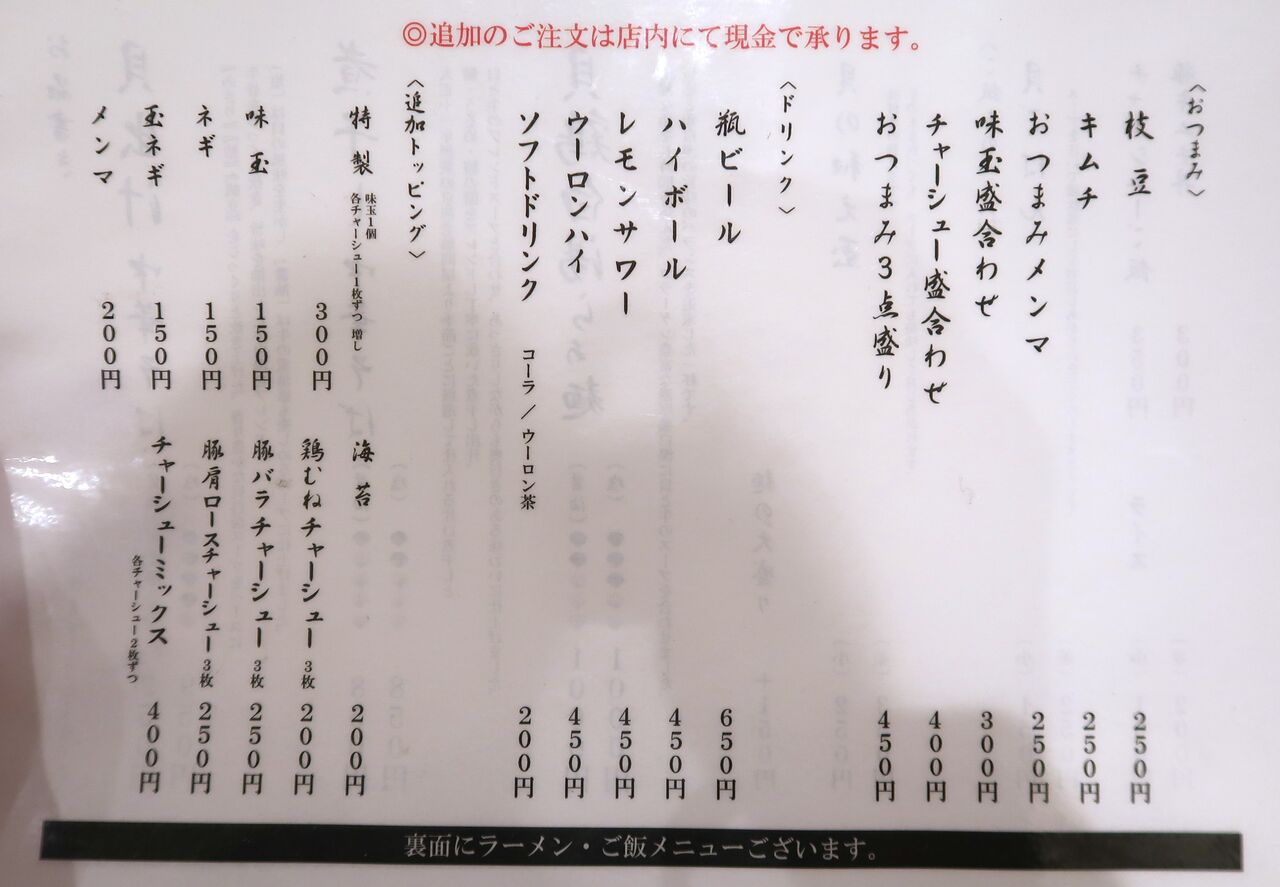 ◎追加のご注文は店内にて現金で承ります。
〈おつまみ〉
枝豆 250円
キムチ 250円
おつまみメンマ 250円
味玉盛合わせ 300円
チャーシュー盛合わせ 400円
おつまみ3点盛り 450円
〈ドリンク〉
瓶ビール 650円
ハイボール 450円
レモンサワー 450円
ウーロンハイ 450円
ソフトドリンク コーラ / ウーロン茶 200円
〈追加トッピング〉
特製 味玉1個
各チャーシュー1枚ずつ 増し
300円
味玉 150円
ネギ 150円
玉ネギ 150円
メンマ 200円
海苔 200円
鶏むねチャーシュー 3枚 200円
豚バラチャーシュー 3枚 250円
豚肩ロースチャーシュー 3枚 250円
チャーシューミックス 400円
各チャーシュー2枚ずつ
裏面にラーメン・ご飯メニューございます。